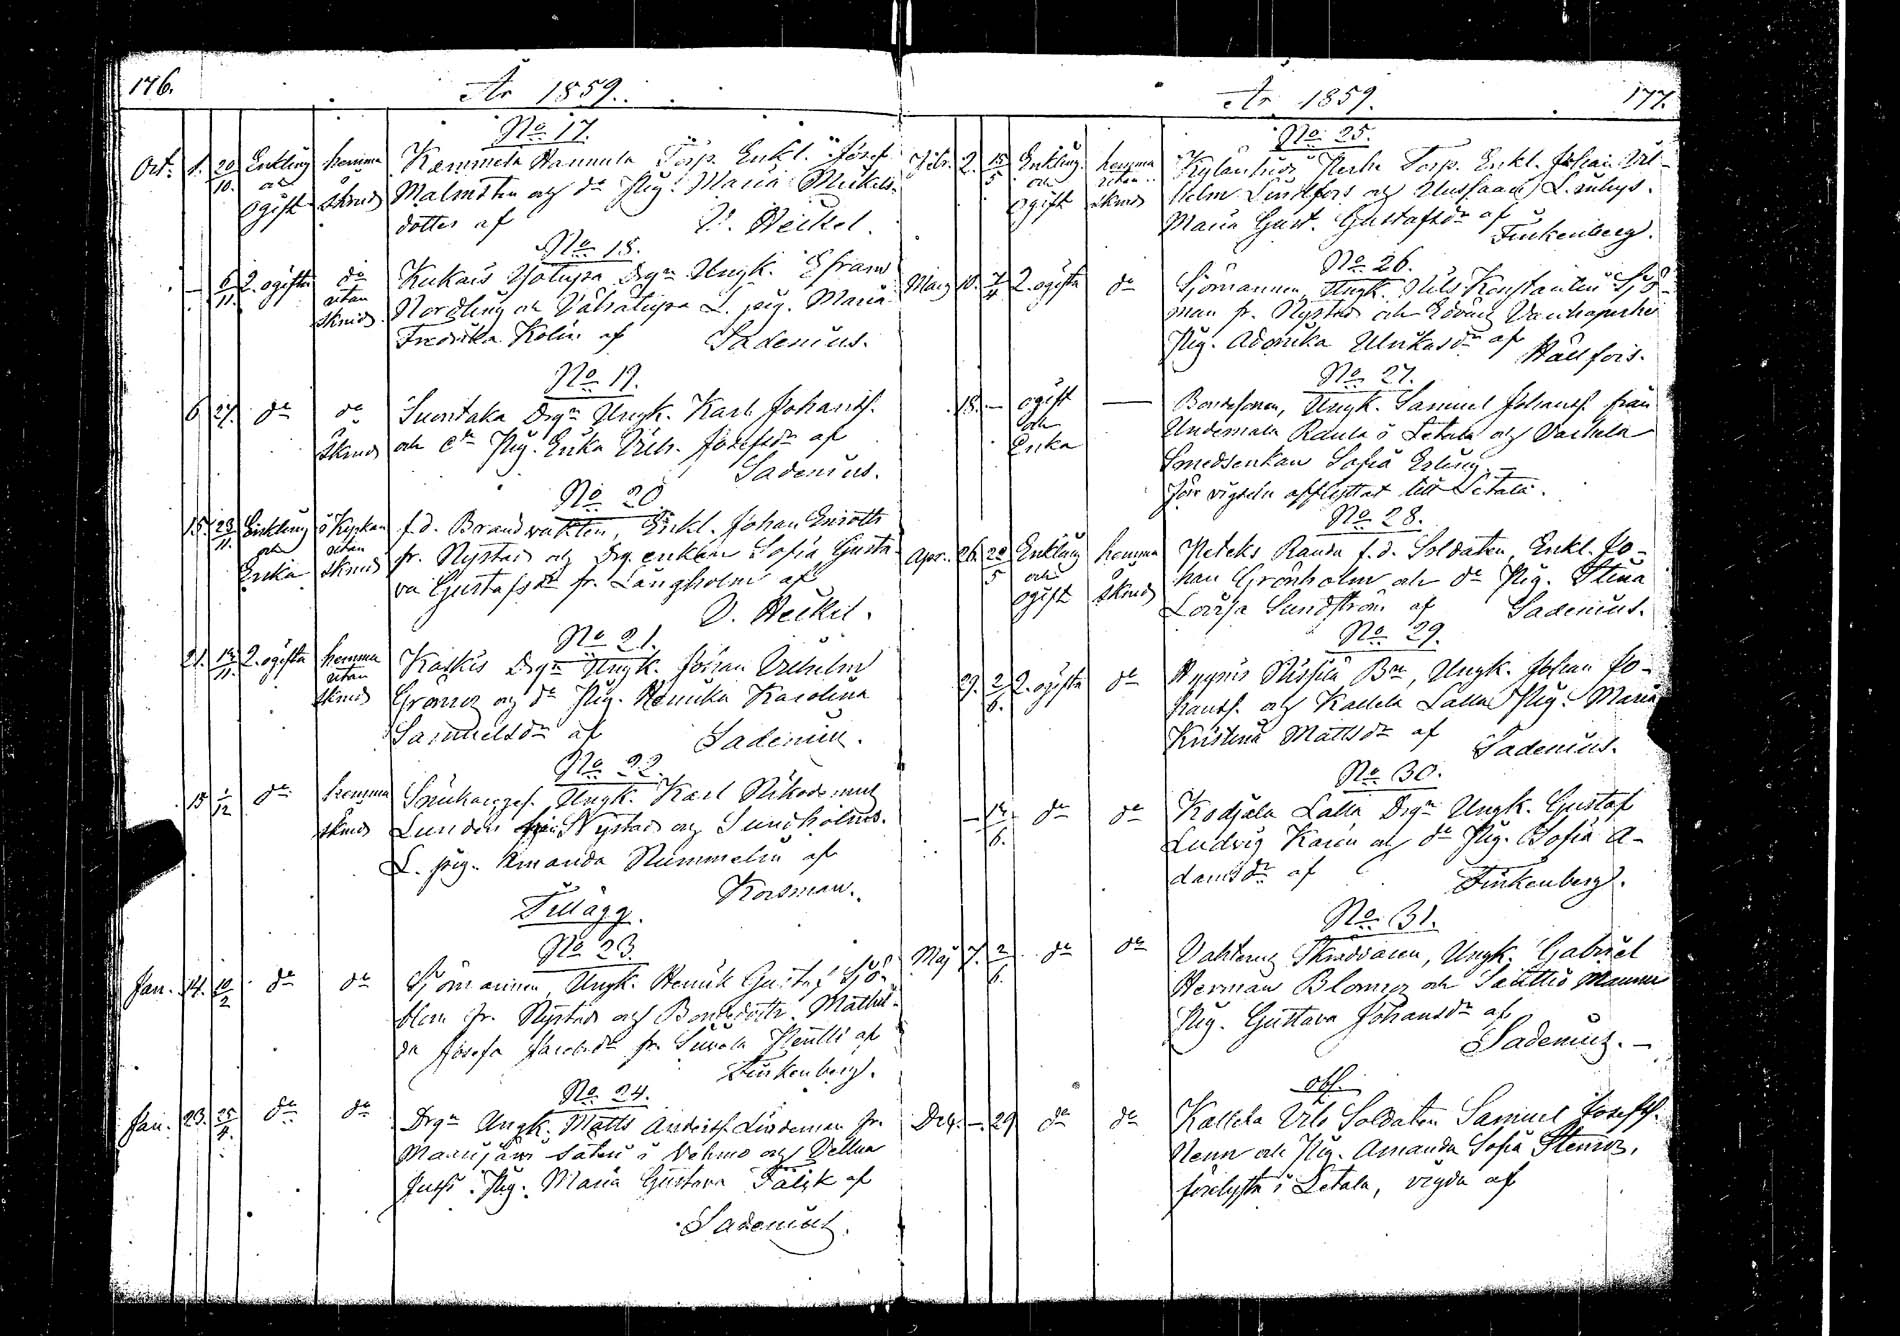 176.
År 1859.
No 17.
Oct. 1. 20/10. Enkling och ogift hemma i skrud
Kammela Hannula Torp. Enkl. Josef
Malmsten och do Pig. Maria Mickels-
dotter af D. Heikel.
No 18.
— 6/11. 2. ogifta do utan skrud.
Kukais Yötupa Drgn Ungk. Efraim
Nordling och L. pig. Maria
Fredrika Kolin af Sadenius.
No 19.
6 27. do do i skrud
Suontaka Drgn Ungk. Karl Johanss.
och do Pig. Erika Vilh. Josefsdr af
Sadenius.
No 20.
15. 23/11. Enkling och Enka i Kyrkan utan skrud
f.d. Brandvakten, Enkl. Johan Enroth
fr. Nystad och Drg. enkan Sofia Gusta-
va Gustafsdr fr. Långholm af
D. Heikel.
No 21.
21. 11. 2. ogifta hemma utan skrud
Kaskis Drgn Ungk. Johan Vilhelm
Grönroos och do Pig. Henrika Karolina
Samuelsdr af Sadenius.
No 22.
15 1/12 do hemma i skrud
Ungk. Karl Nikodemus
Lunden från Nystad och Sundholms
L. pig. Amanda Nummelin af
Korsman.
Tillägg.
No 23.
Jan. 14. 10/2 do do
Sjömannen, Ungk. Henrik Gustaf Sjö-
blom fr. Nystad och Bondedottr. Mathil-
da Josefa Jacobsdr fr. Suvola Heutti af
Finkenberg.
No 24.
Jan. 23. 25/4. do do
Drgn Ungk. Matts Andersf. Lindeman fr.
Mannjäis i Vehmo och Vellua
Jussi Pig. Maria Gustava Falck af
Sadenius.
År 1859.
177.
No 25.
Febr. 2. 15/5 Enkling och ogift hemma utan skrud
Perhe Torp. Enkl. Johan Vil-
helm Lindfors och L. inhys.
Maria Gust. Gustafsdr af
Finkenberg.
No 26.
Mars 10. 7/4 2. ogifta do
Sjömannen, Ungk. Nils Konstantin Sjö-
man fr. Nystad och Edväng Vanhaperhe
Pig. Adamika Ulrikasdr af Hällfors.
No 27.
18. — ogift och Enka —
Bondesonen, Ungk. Samuel Johansf. från
Undemala Raula i Letala och Varhela
Smedsenkan Sofia Erling —
före vigseln afflyttat till Letala.
No 28.
Apr. 26. 20/5 Enkling och ogift hemma i skrud
Peteks Randu f.d. Soldaten, Enkl. Jo-
han Grönholm och do Pig. Stina
Lovisa Sundström af Sadenius.
No 29.
29. 2/6. 2. ogifta do
Hyynis Sissilä Bn, Ungk. Johan Jo-
hansf. och Kallela Lalla Pig. Maria
Kristina Mattsdr af Sadenius.
No 30.
— 6. do do
Kodjala Lalla Drgn Ungk. Gustaf
Ludvig Karén och do Pig. Sofia A-
damsdr af Finkenberg.
No 31.
Maj 7. 2/6. do do
Vahterus Skräddaren, Ungk. Gabriel
Herman Blomroos och Salttis Mamma
Pig. Gustava Johansdr af
Sadenius. —
obs.
Dec. — 29 do do
Kallela Vilo Soldaten Samuel Josefsf.
Henn och Pig. Amanda Sofia Stenroos,
förelysta i Letala, vigda af